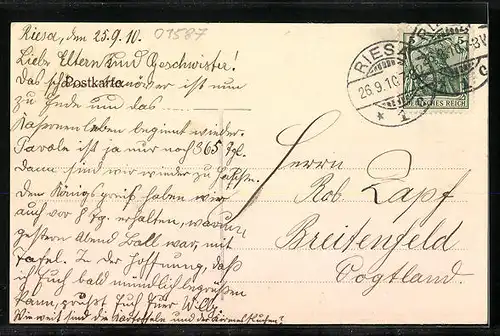 01587
Riesa, den 25.9.10.
Liebe Eltern und Geschwister!
Das schöne Manöver ist nun
Postkarte
zu Ende und das
Kasernenleben beginnt wieder.
Parole ist ja nur noch 365 Tg.
Dann sind wir wieder zu
Den Königspreis haben wir
auch vor 8 Tg. erhalten, warum
gestern Abend Ball war, mit
Tafel. In der Hoffnung, daß
ich Euch bald mündlich begrüßen
kann, grüßt Euch Euer Willy.
Wie weit sind die Kartoffeln und der Kirmeskuchen?
RIESA
26.9.10
DEUTSCHES REICH
Herrn
Rob. Zapf
Breitenfeld
Vogtland.